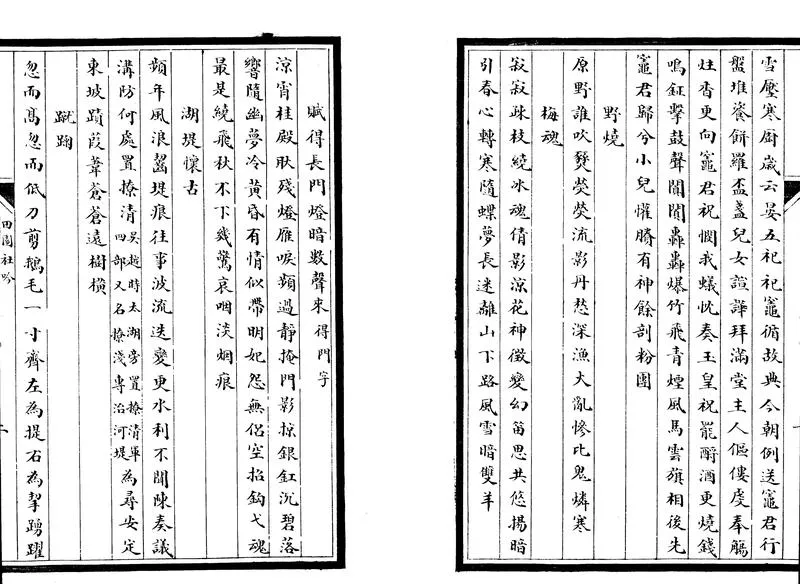 雪壓寒厨歲云晏五祀祀竈循故典今朝例送竈君行
盤堆餈餅羅盃盞兒女諠譁拜滿堂主人傴僂虔奉觴
炷香更向竈君祝憫我蟻忱奏玉皇祝罷酹酒更燒錢
鳴鉦擊鼓聲闐闐轟轟爆竹飛青煙風馬雲旗相後先
竈君歸兮小兒懽賸有神餘剖粉團
野燒
原野誰吹燹熒熒流影丹愁深漁火亂慘比鬼燐寒
梅魂
寂寂疎枝繞冰魂倩影涼花神徵變幻笛思共悠揚暗
引春心轉寒隨蝶夢長迷離山下路風雪暗雙羊
賦得長門燈暗數聲來得門字
涼宵桂殿耿殘燈雁唳頻過靜掩門影掠銀釭沉碧落
響隨幽夢冷黃昏有情似帶明妃怨無侶空招鈎弋魂
最是繞飛秋不下幾驚哀咽淡烟痕
湖堤懷古
頻年風浪齧堤痕往事波流迭變更水利不聞陳奏議
溝防何處置撩清吳越時太湖旁置撩清軍四部又名撩淺專治河堤為尋安定
東坡蹟葭葦蒼蒼遠樹橫
蹴踘
忽而高忽而低刀剪鵝毛一寸齊左為提右為挈踴躍
田園社吟